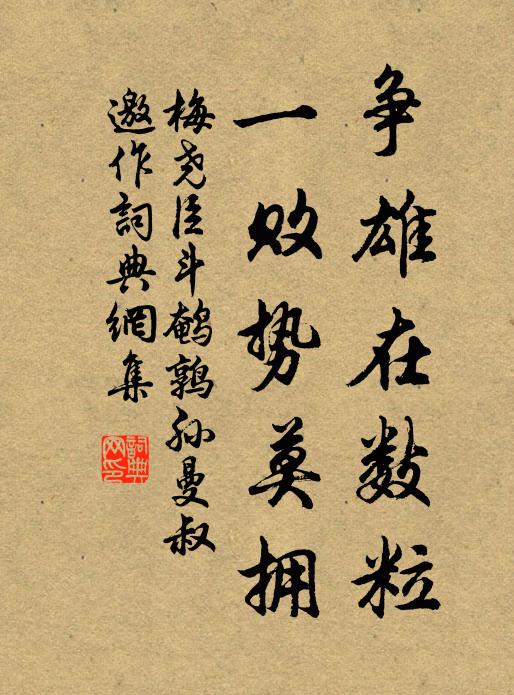 争雄在数粒
一败势莫拥
梅尧臣斗鹌鹑孙曼叔
邀作詞典網集
詞典
网印